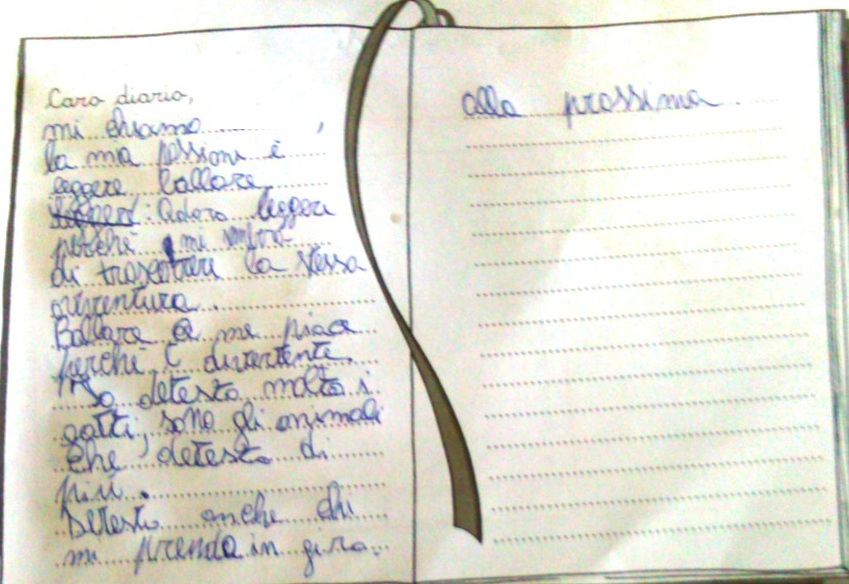 Caro diario,
mi chiamo ,
la mia passione è
leggere ballare
: Adoro leggere
perché mi sembra
di trascorrere la stessa
avventura.
Ballare a me piace
perché è divertente.
Io detesto molto i
gatti, sono gli animali
che detesto di
più.
Detesto anche chi
mi prenda in giro.
alla prossima